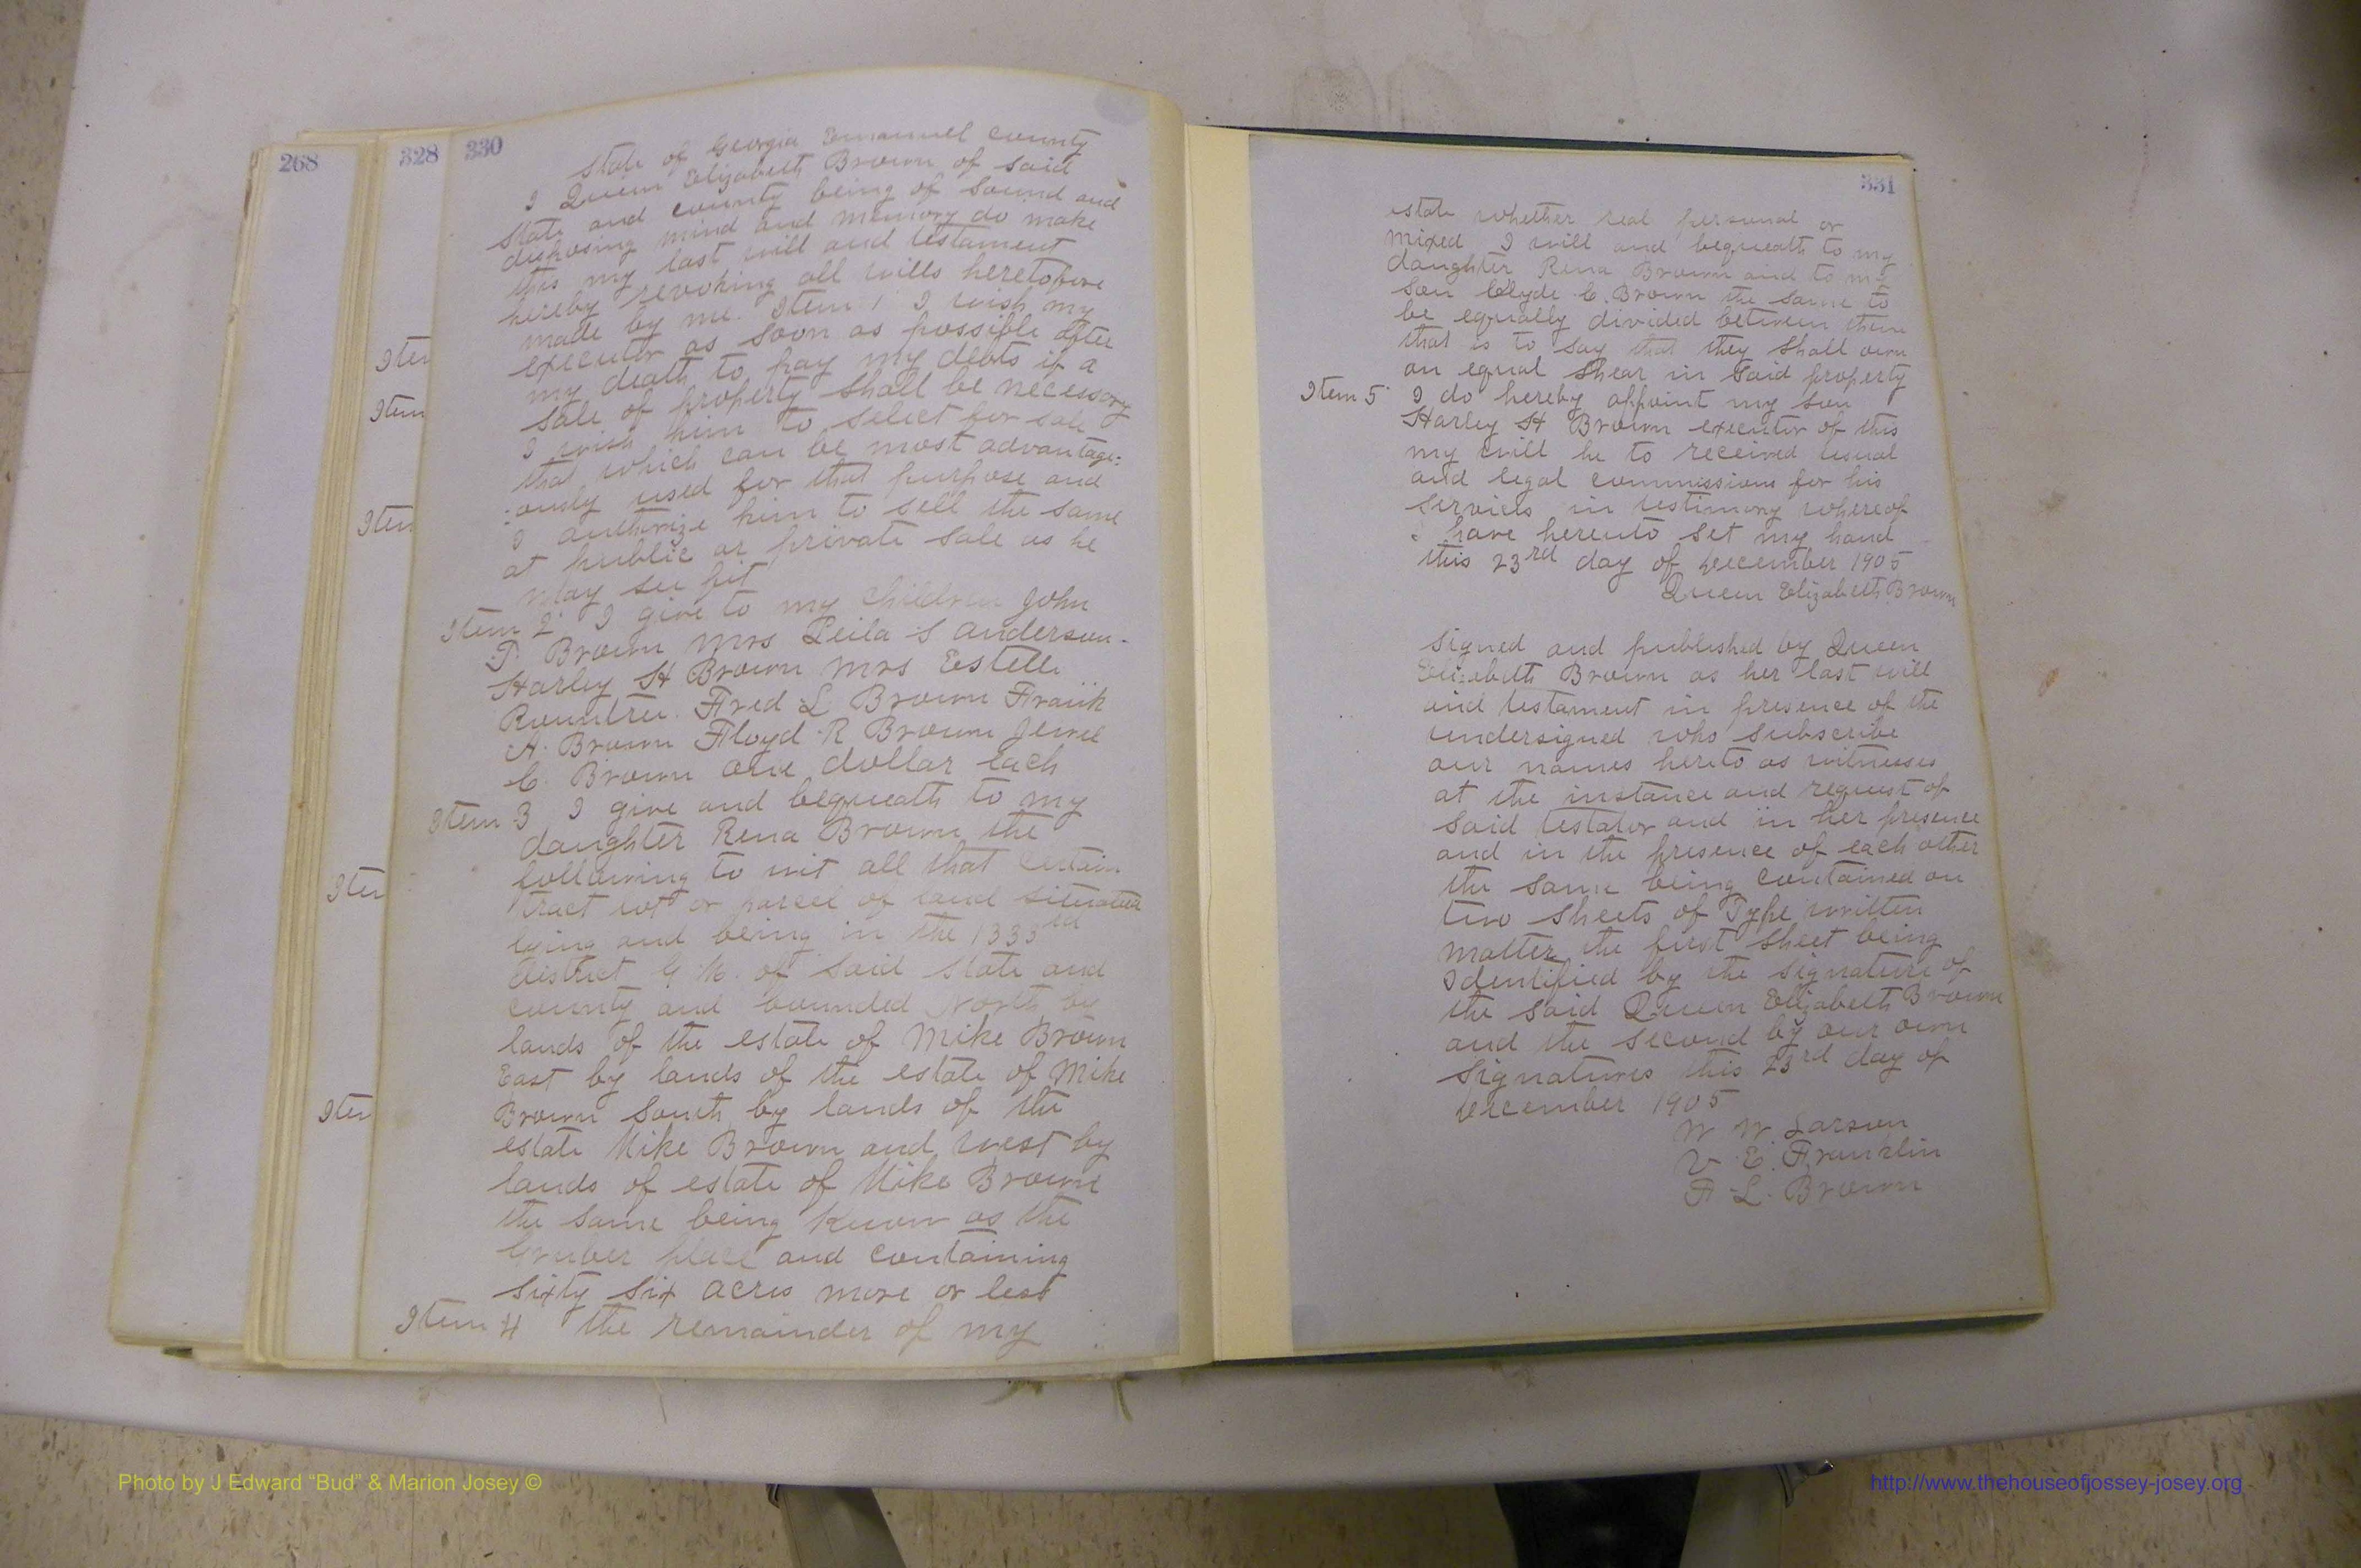 268
328
330
State of Georgia Emanuel county
I Queen Elizabeth Brown of said
State and county being of sound and
disposing mind and memory do make
this my last will and testament
hereby revoking all wills heretofore
made by me. Item 1 I wish my
executor as soon as possible after
my death to pay my debts if a
sale of property shall be necessary
I wish him to select for sale
that which can be most advantage:
:ously used for that purpose and
I authorize him to sell the same
at public or private sale as he
may see fit
Item 2 I give to my children John
T. Brown Mrs Leila S anderson.
Harley H Brown Mrs Estelle
Rountree. Fred L Brown Frank
A. Brown Floyd R Brown Jewel
C. Brown one dollar each
Item 3 I give and bequeath to my
daughter Rena Brown the
following to wit all that certain
tract lot or parcel of land situated
lying and being in the 1333rd
district G M. of said state and
county and bounded North by
lands of the estate of Mike Brown
East by lands of the estate of Mike
Brown South by lands of the
estate Mike Brown and west by
lands of estate of Mike Brown
the same being known as the
place and containing
sixty six acres more or less
Item 4 the remainder of my
Iter
Item
Iten
Iter
Iter
331
estate whether real personal or
mixed I will and bequeath to my
daughter Rena Brown and to my
son Clyde C. Brown the same to
be equally divided between them
that is to say that they shall own
an equal shear in said property
Item 5 I do hereby appoint my son
Harley H Brown executor of this
my will he to received usual
and legal commissions for his
services in testimony whereof
I have hereunto set my hand
this 23rd day of December 1905
Queen Elizabeth Brown
signed and published by Queen
Elizabeth Brown as her last will
and testament in presence of the
undersigned who subscribe
our names hereto as witnesses
at the instance and request of
said testator and in her presence
and in the presence of each other
the same being contained on
two sheets of Type written
matter the first sheet being
Identified by the signature of
the said Queen Elizabeth Brown
and the second by our own
signatures this 23rd day of
December 1905
W W Larsen
V. E. Franklin
F L. Brown
Photo by J Edward “Bud” & Marion Josey ©
http://www.thehouseofjossey-josey.org